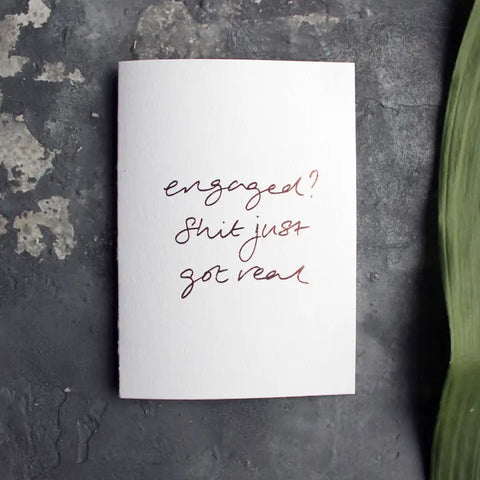 engaged?
Shit just
got real